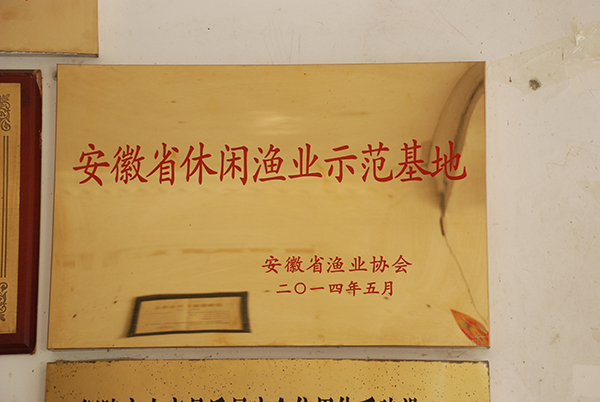 安徽省休闲渔业示范基地
安徽省渔业协会
二〇一四年五月